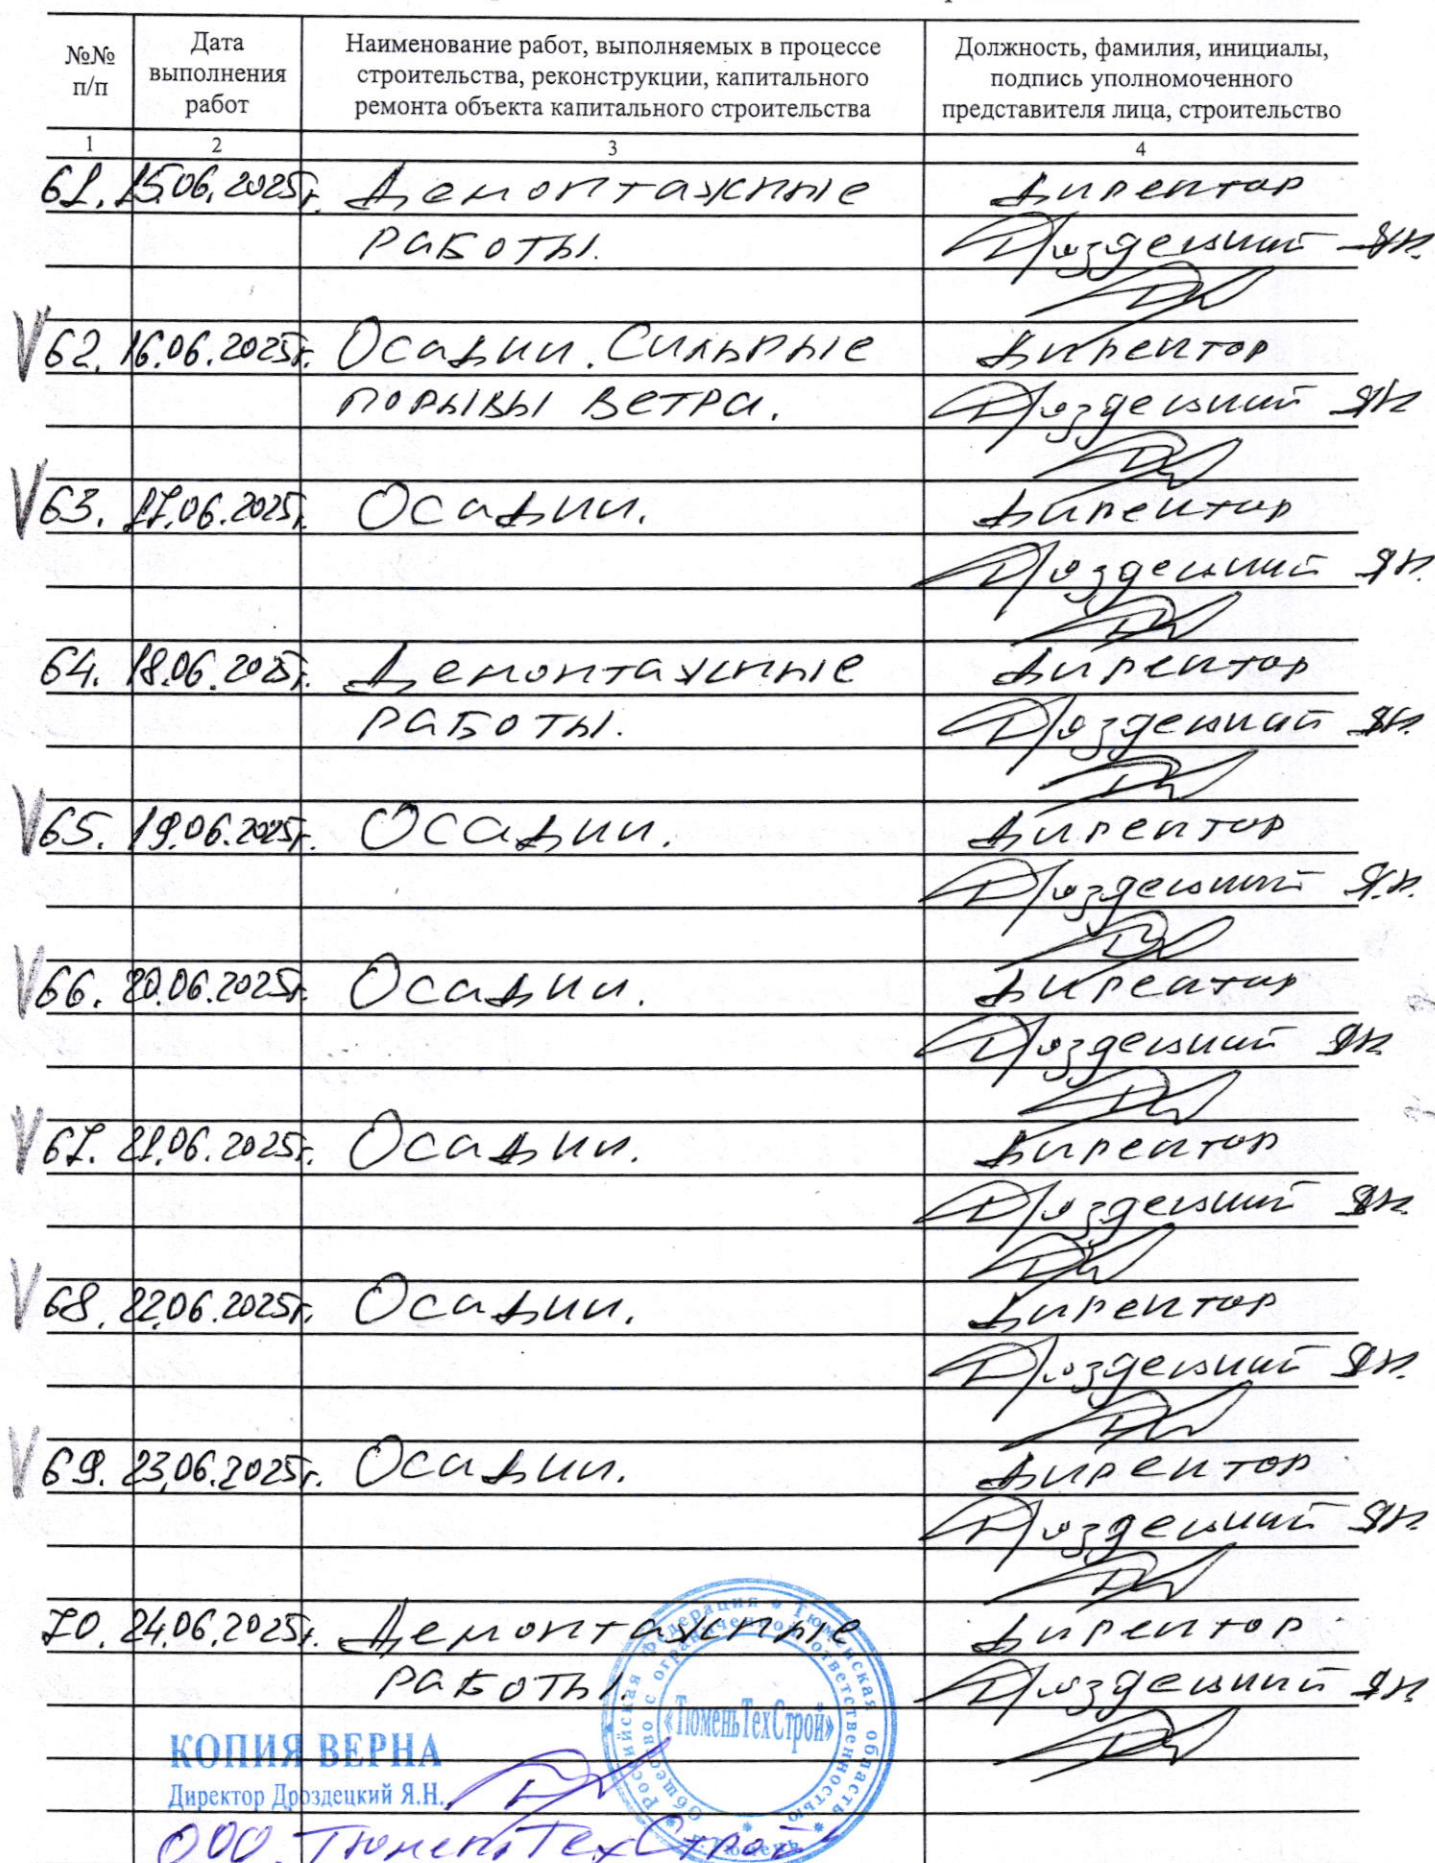 №№ п/п
Дата выполнения работ
Наименование работ, выполняемых в процессе строительства, реконструкции, капитального ремонта объекта капитального строительства
Должность, фамилия, инициалы, подпись уполномоченного представителя лица, строительство
1 2 3 4
61. 15.06.2025г. Демонтажные Директор
работы. Дроздецкий Я.Н.
62. 16.06.2025г. Осадки. Сильные Директор
порывы ветра. Дроздецкий ЯН
63. 17.06.2025г. Осадки. Директор
Дроздецкий ЯН.
64. 18.06.2025г. Демонтажные Директор
работы. Дроздецкий ЯН.
65. 19.06.2025г. Осадки. Директор
Дроздецкий Я.Н.
66. 20.06.2025г. Осадки. Директор
Дроздецкий ЯН
67. 21.06.2025г. Осадки. Директор
Дроздецкий ЯН.
68. 22.06.2025г. Осадки. Директор
Дроздецкий ЯН.
69. 23.06.2025г. Осадки. Директор
Дроздецкий ЯН
70. 24.06.2025г. Демонтажные Директор
работы. Дроздецкий ЯН
Российская Федерация * Тюменская область * г. Тюмень *
Общество с ограниченной ответственностью *
«ТюменьТехСтрой»
КОПИЯ ВЕРНА
Директор Дроздецкий Я.Н.
ООО "ТюменьТехСтрой"